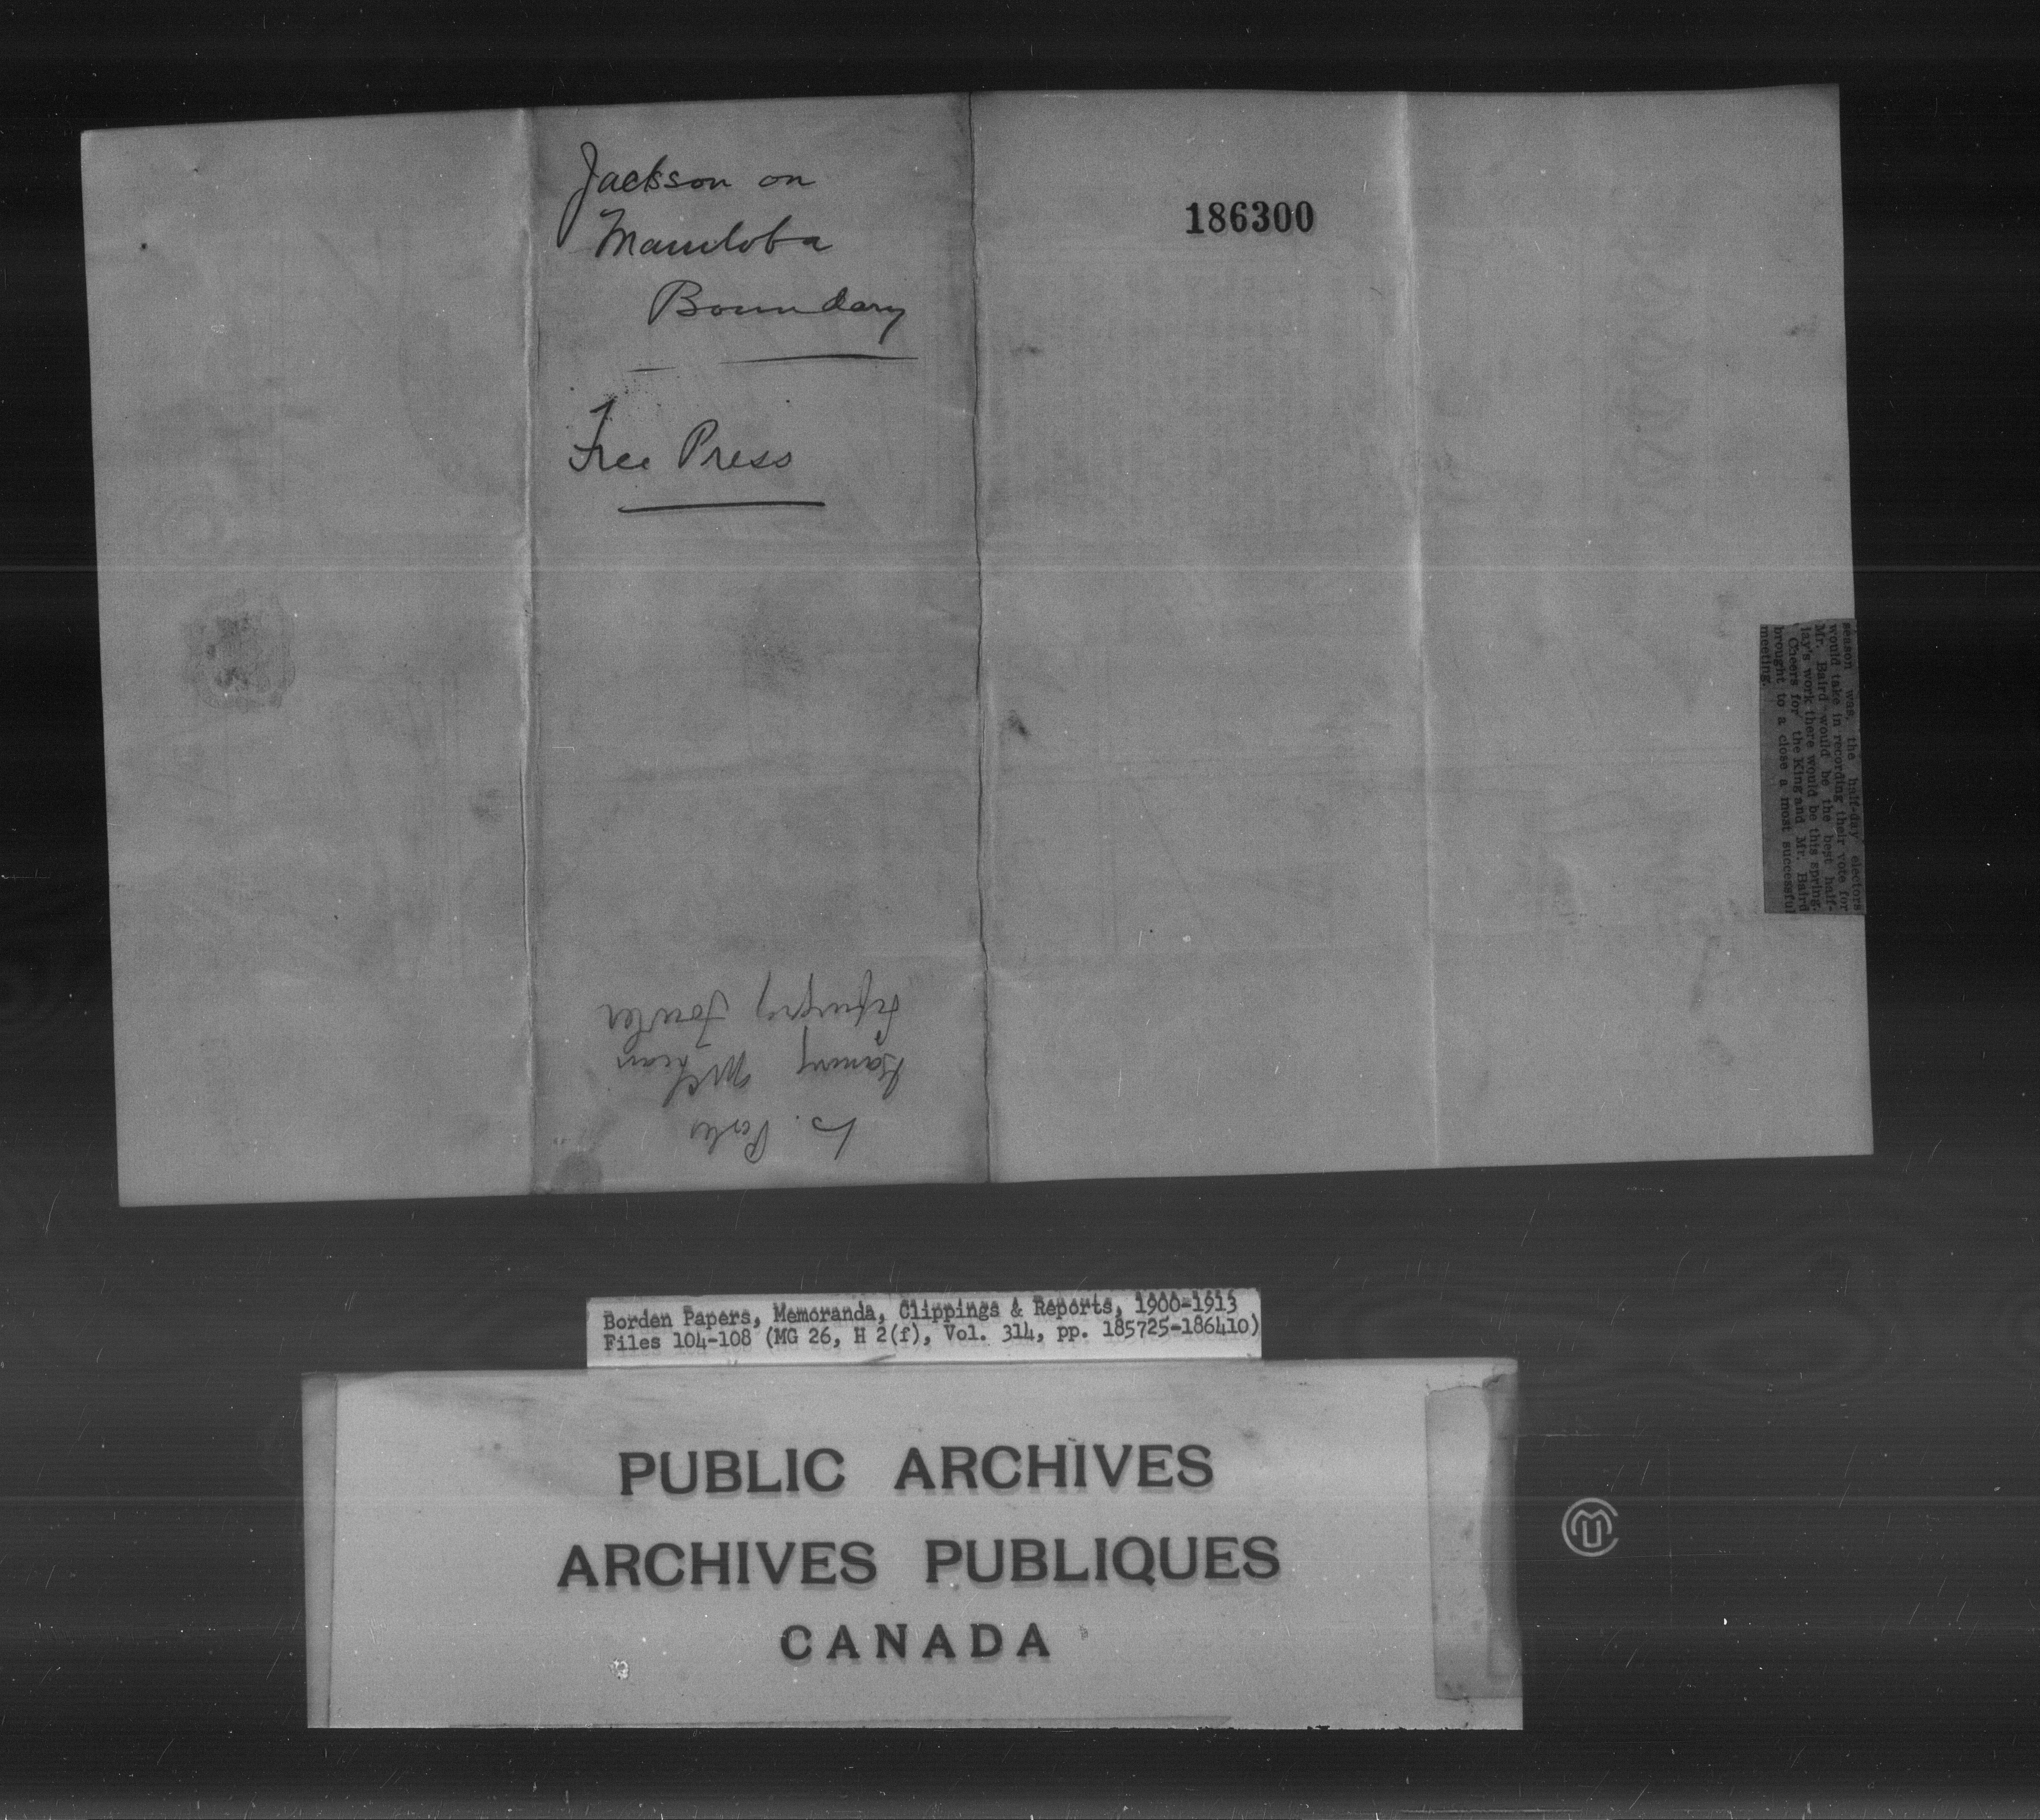 Jackson on
Manitoba
Boundary
Free Press
186300
season was, the half-day electors
would take in recording their vote for
Mr. Baird would be the best half-
day's work there would be this spring.
Cheers for the King and Mr. Baird
brought to a close a most successful
meeting.
Fowler
Borden Papers, Memoranda, Clippings & Reports, 1900-1913
Files 104-108 (MG 26, H 2(f), Vol. 314, pp. 185725-186410)
PUBLIC ARCHIVES
ARCHIVES PUBLIQUES
CANADA